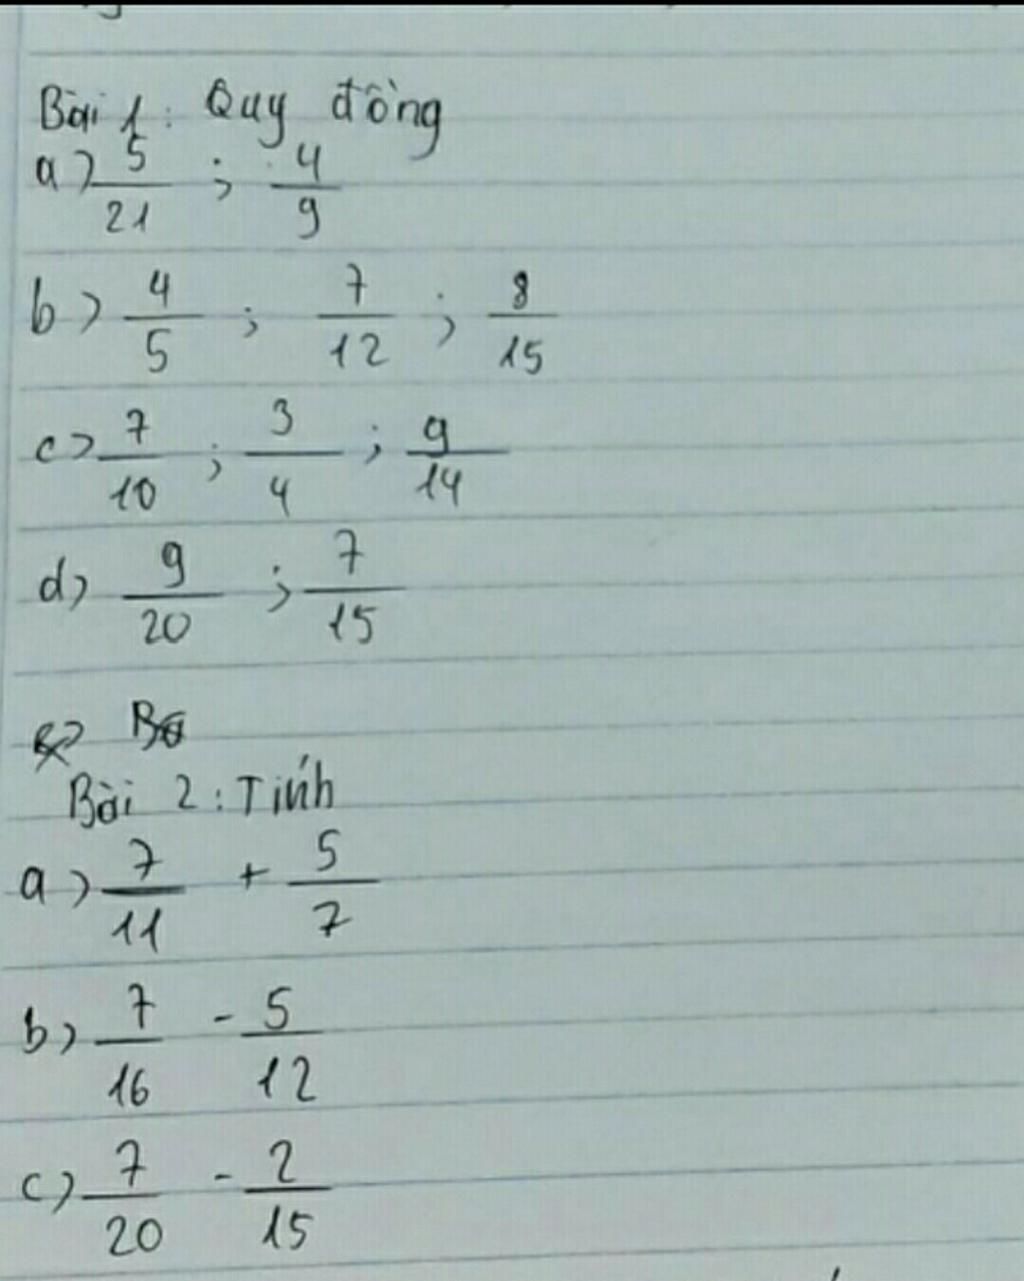 Bài 1: Quy đồng
a) 5/21 ; 4/9
b) 4/5 ; 7/12 ; 8/15
c) 7/10 ; 3/4 ; 9/14
d) 9/20 ; 7/15
Bài 2: Tính
a) 7/11 + 5/7
b) 7/16 - 5/12
c) 7/20 - 2/15